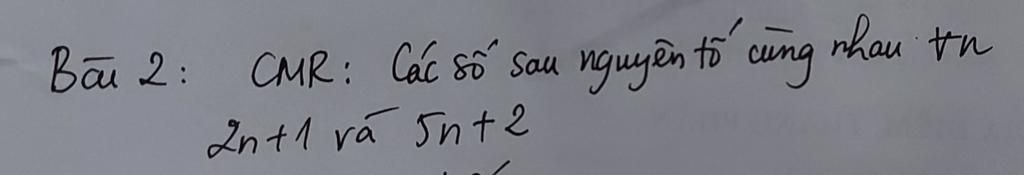 Bài 2: CMR: Các số sau nguyên tố cùng nhau ∀n
2n+1 và 5n+2